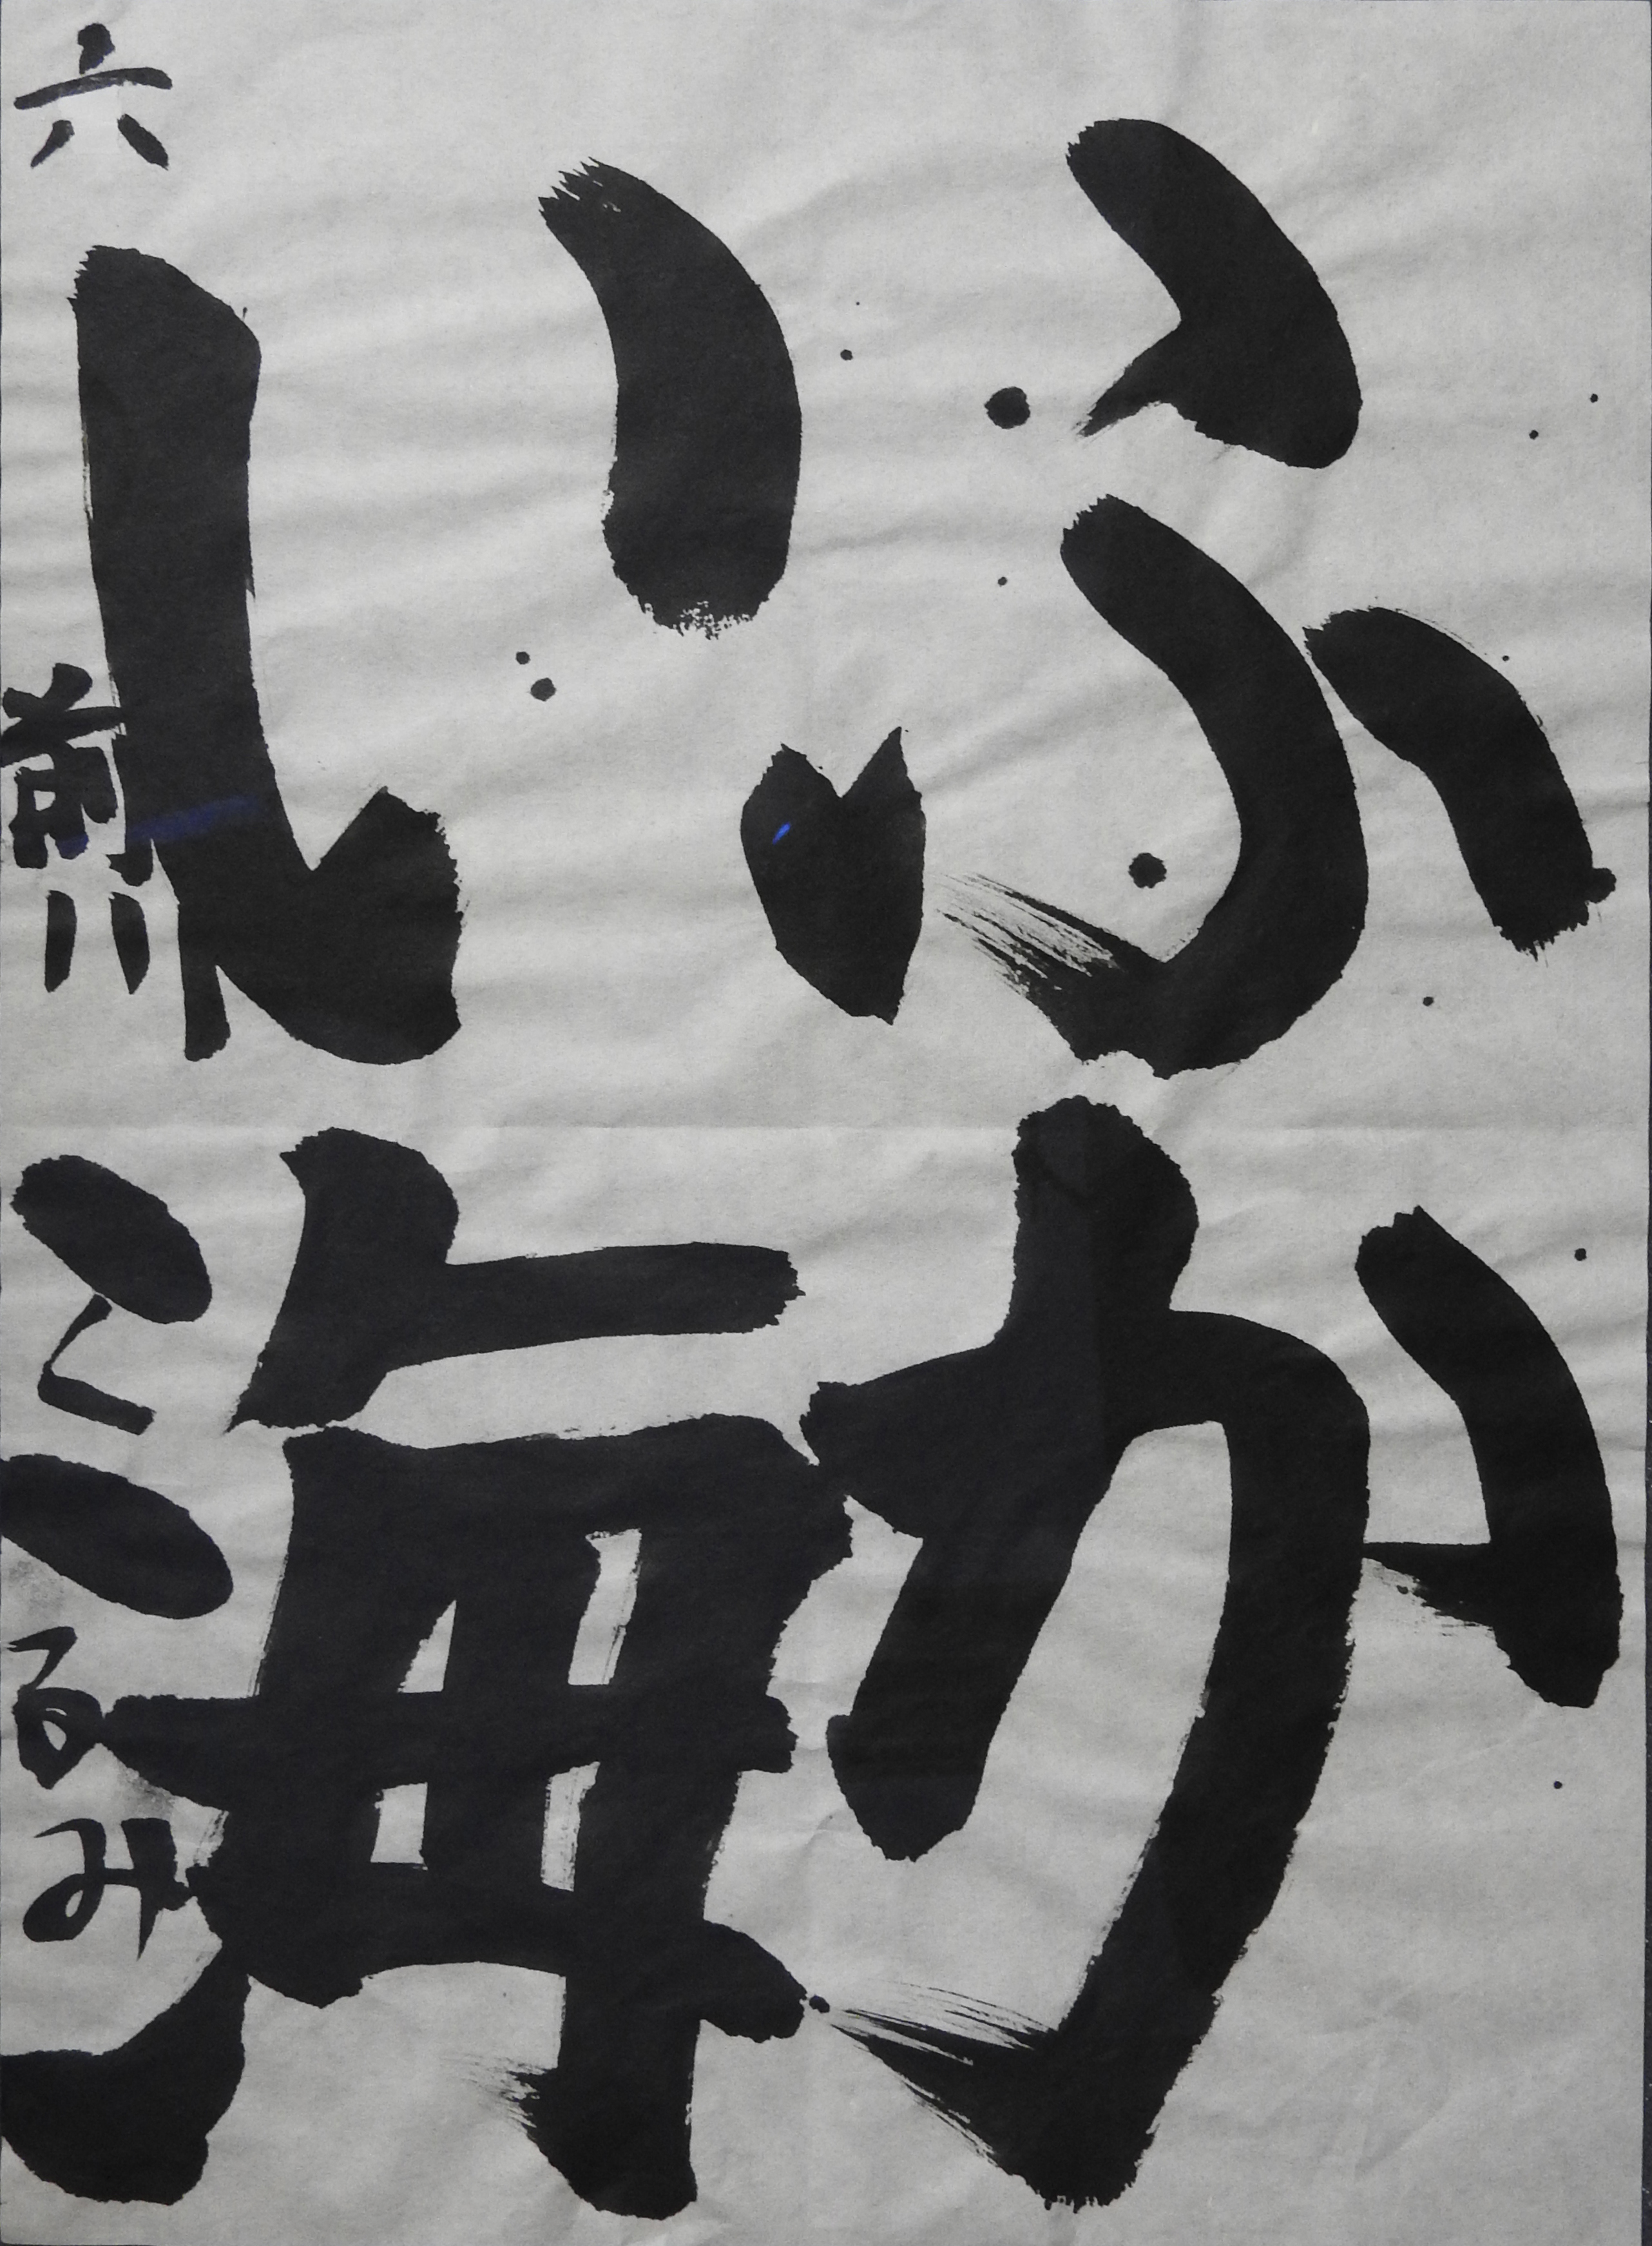 ふか
い海
六 前川くるみ